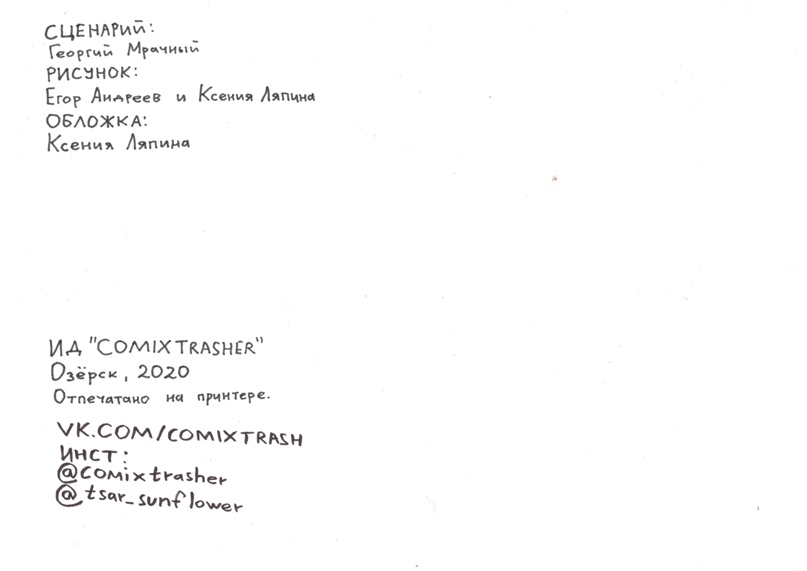 СЦЕНАРИЙ:
Георгий Мрачный
РИСУНОК:
Егор Андреев и Ксения Ляпина
ОБЛОЖКА:
Ксения Ляпина
ИД "COMIXTRASHER"
Озёрск, 2020
Отпечатано на принтере.
VK.COM/COMIXTRASH
ИНСТ:
@comixtrasher
@tsar_sunflower